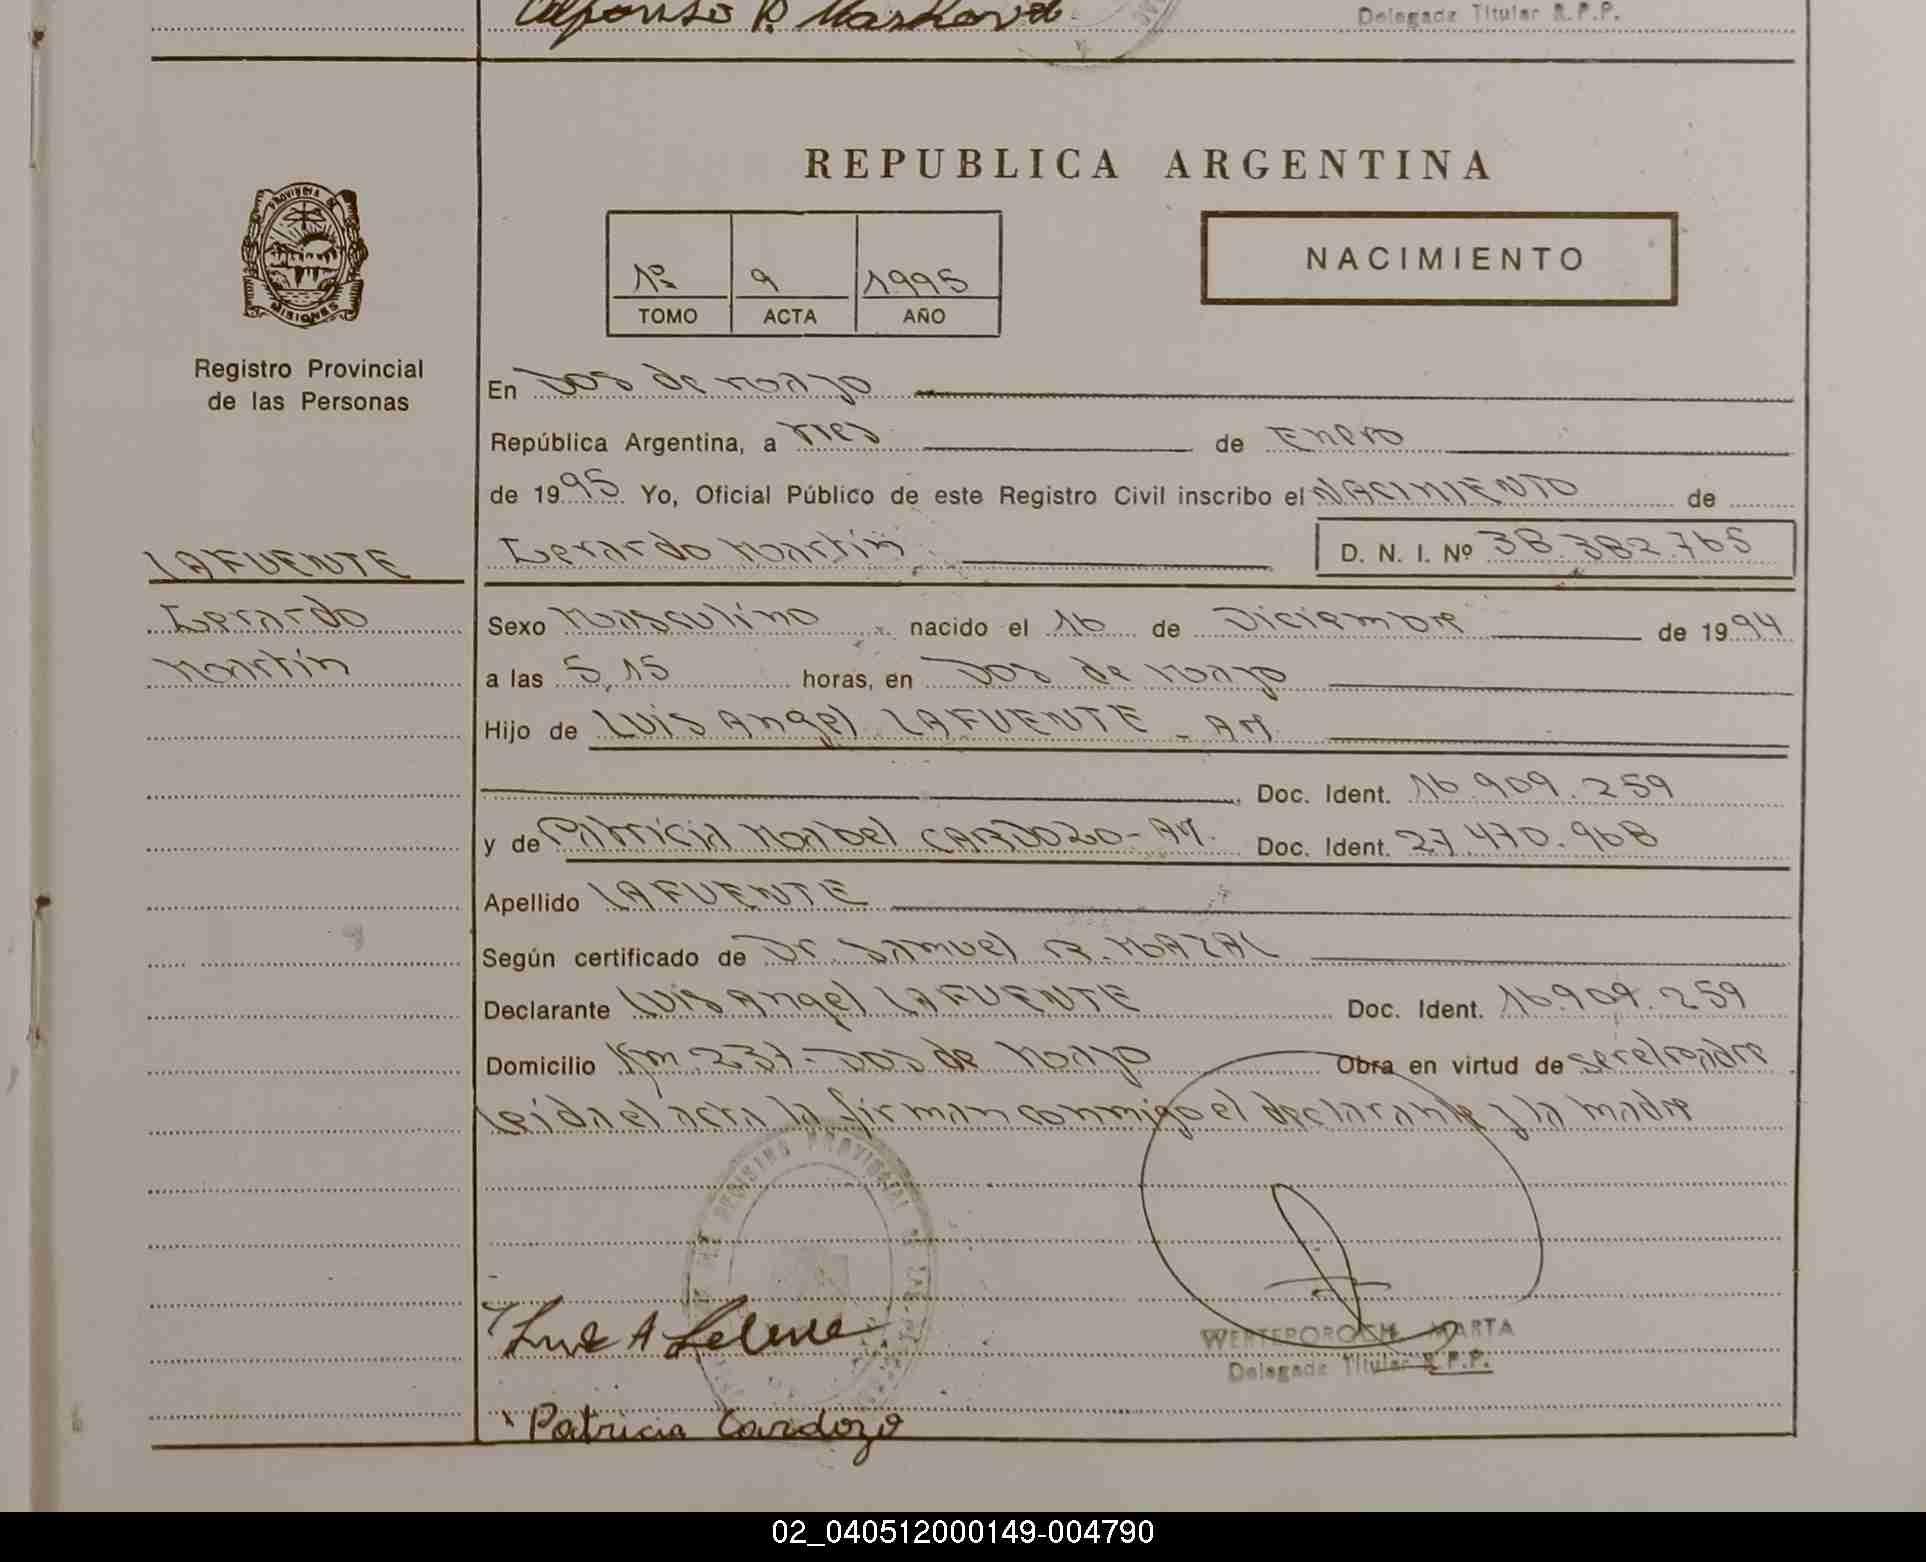 Alfonso R.
Delegada Titular R.P.P.
REPUBLICA ARGENTINA
PROVINCIA DE
MISIONES
Registro Provincial
de las Personas
1º 9 1995
TOMO ACTA AÑO
NACIMIENTO
En Dos de Mayo
República Argentina, a tres de Enero
de 1995 Yo, Oficial Público de este Registro Civil inscribo el NACIMIENTO de
Gerardo Martín D. N. I. Nº 38.382.765
LAFUENTE
Gerardo
Martín
Sexo Masculino nacido el 16 de Diciembre de 1994
a las 5,15 horas, en Dos de Mayo
Hijo de Luis Angel LAFUENTE - AM
Doc. Ident. 16.909.259
y de Patricia Mabel CARDOZO - AM. Doc. Ident. 27.470.968
Apellido LAFUENTE
Según certificado de Dr. Samuel R. MAZAL
Declarante Luis Angel LAFUENTE Doc. Ident. 16.909.259
Domicilio Km 237 - Dos de Mayo Obra en virtud de ser el padre
leida el acta la firman conmigo el declarante y la madre
REGISTRO PROVINCIAL DE LAS
Luis A
WERTEPOROCH MARTA
Delegada Titular R.P.P.
Patricia Cardozo
02_040512000149-004790